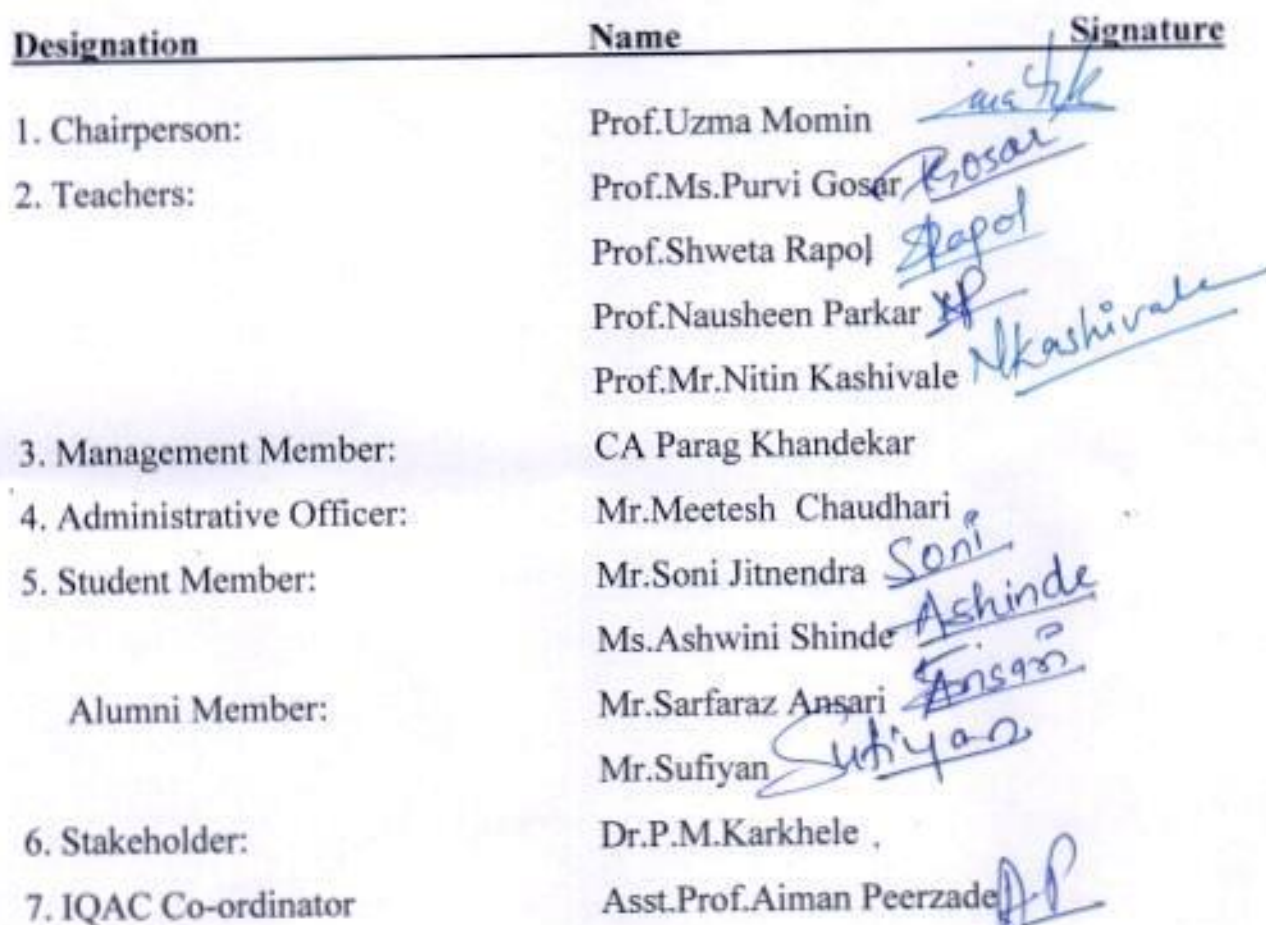 Designation Name Signature
1. Chairperson: Prof.Uzma Momin
2. Teachers: Prof.Ms.Purvi Gosar Gosar
Prof.Shweta Rapol SRapol
Prof.Nausheen Parkar NP
Prof.Mr.Nitin Kashivale Nkashivale
3. Management Member: CA Parag Khandekar
4. Administrative Officer: Mr.Meetesh Chaudhari
5. Student Member: Mr.Soni Jitnendra Soni
Ms.Ashwini Shinde Ashinde
Alumni Member: Mr.Sarfaraz Ansari Ansari
Mr.Sufiyan Sufiyan
6. Stakeholder: Dr.P.M.Karkhele .
7. IQAC Co-ordinator Asst.Prof.Aiman Peerzade A.P